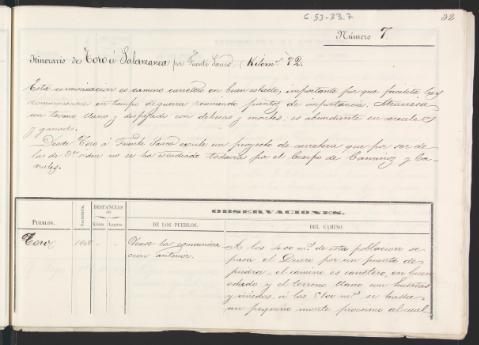 C-53-33-7
32
Número 7
Itinerario de Toro á Salamanca por Fuente Sauco (Kilom.s 72.
Esta comunicacion es camino carretero en buen estado, importante por que facilita las
comunicaciones en tiempo de guerra reuniendo puntos de importancia. Atraviesa
un terreno llano y despejado con dehesas y montes: es abundante en cereales
y ganado.
Desde Toro á Fuente Sauco existe un proyecto de carretera que por ser de
las de 3er orden no se ha estudiado todavia por el Cuerpo de Caminos y Ca-
nales.
OBSERVACIONES.
PUEBLOS.
DISTANCIAS
DE LOS PUEBLOS.
DEL CAMINO.
Toro
Desde la comunica-
cion anterior.
A los 400 m.s de esta poblacion se
pasa el Duero por un puente de
piedra, el camino es carretero, en buen
estado y el terreno llano con huertas
y viñedos, á los m.s se halla
un pequeño monte proximo al cual